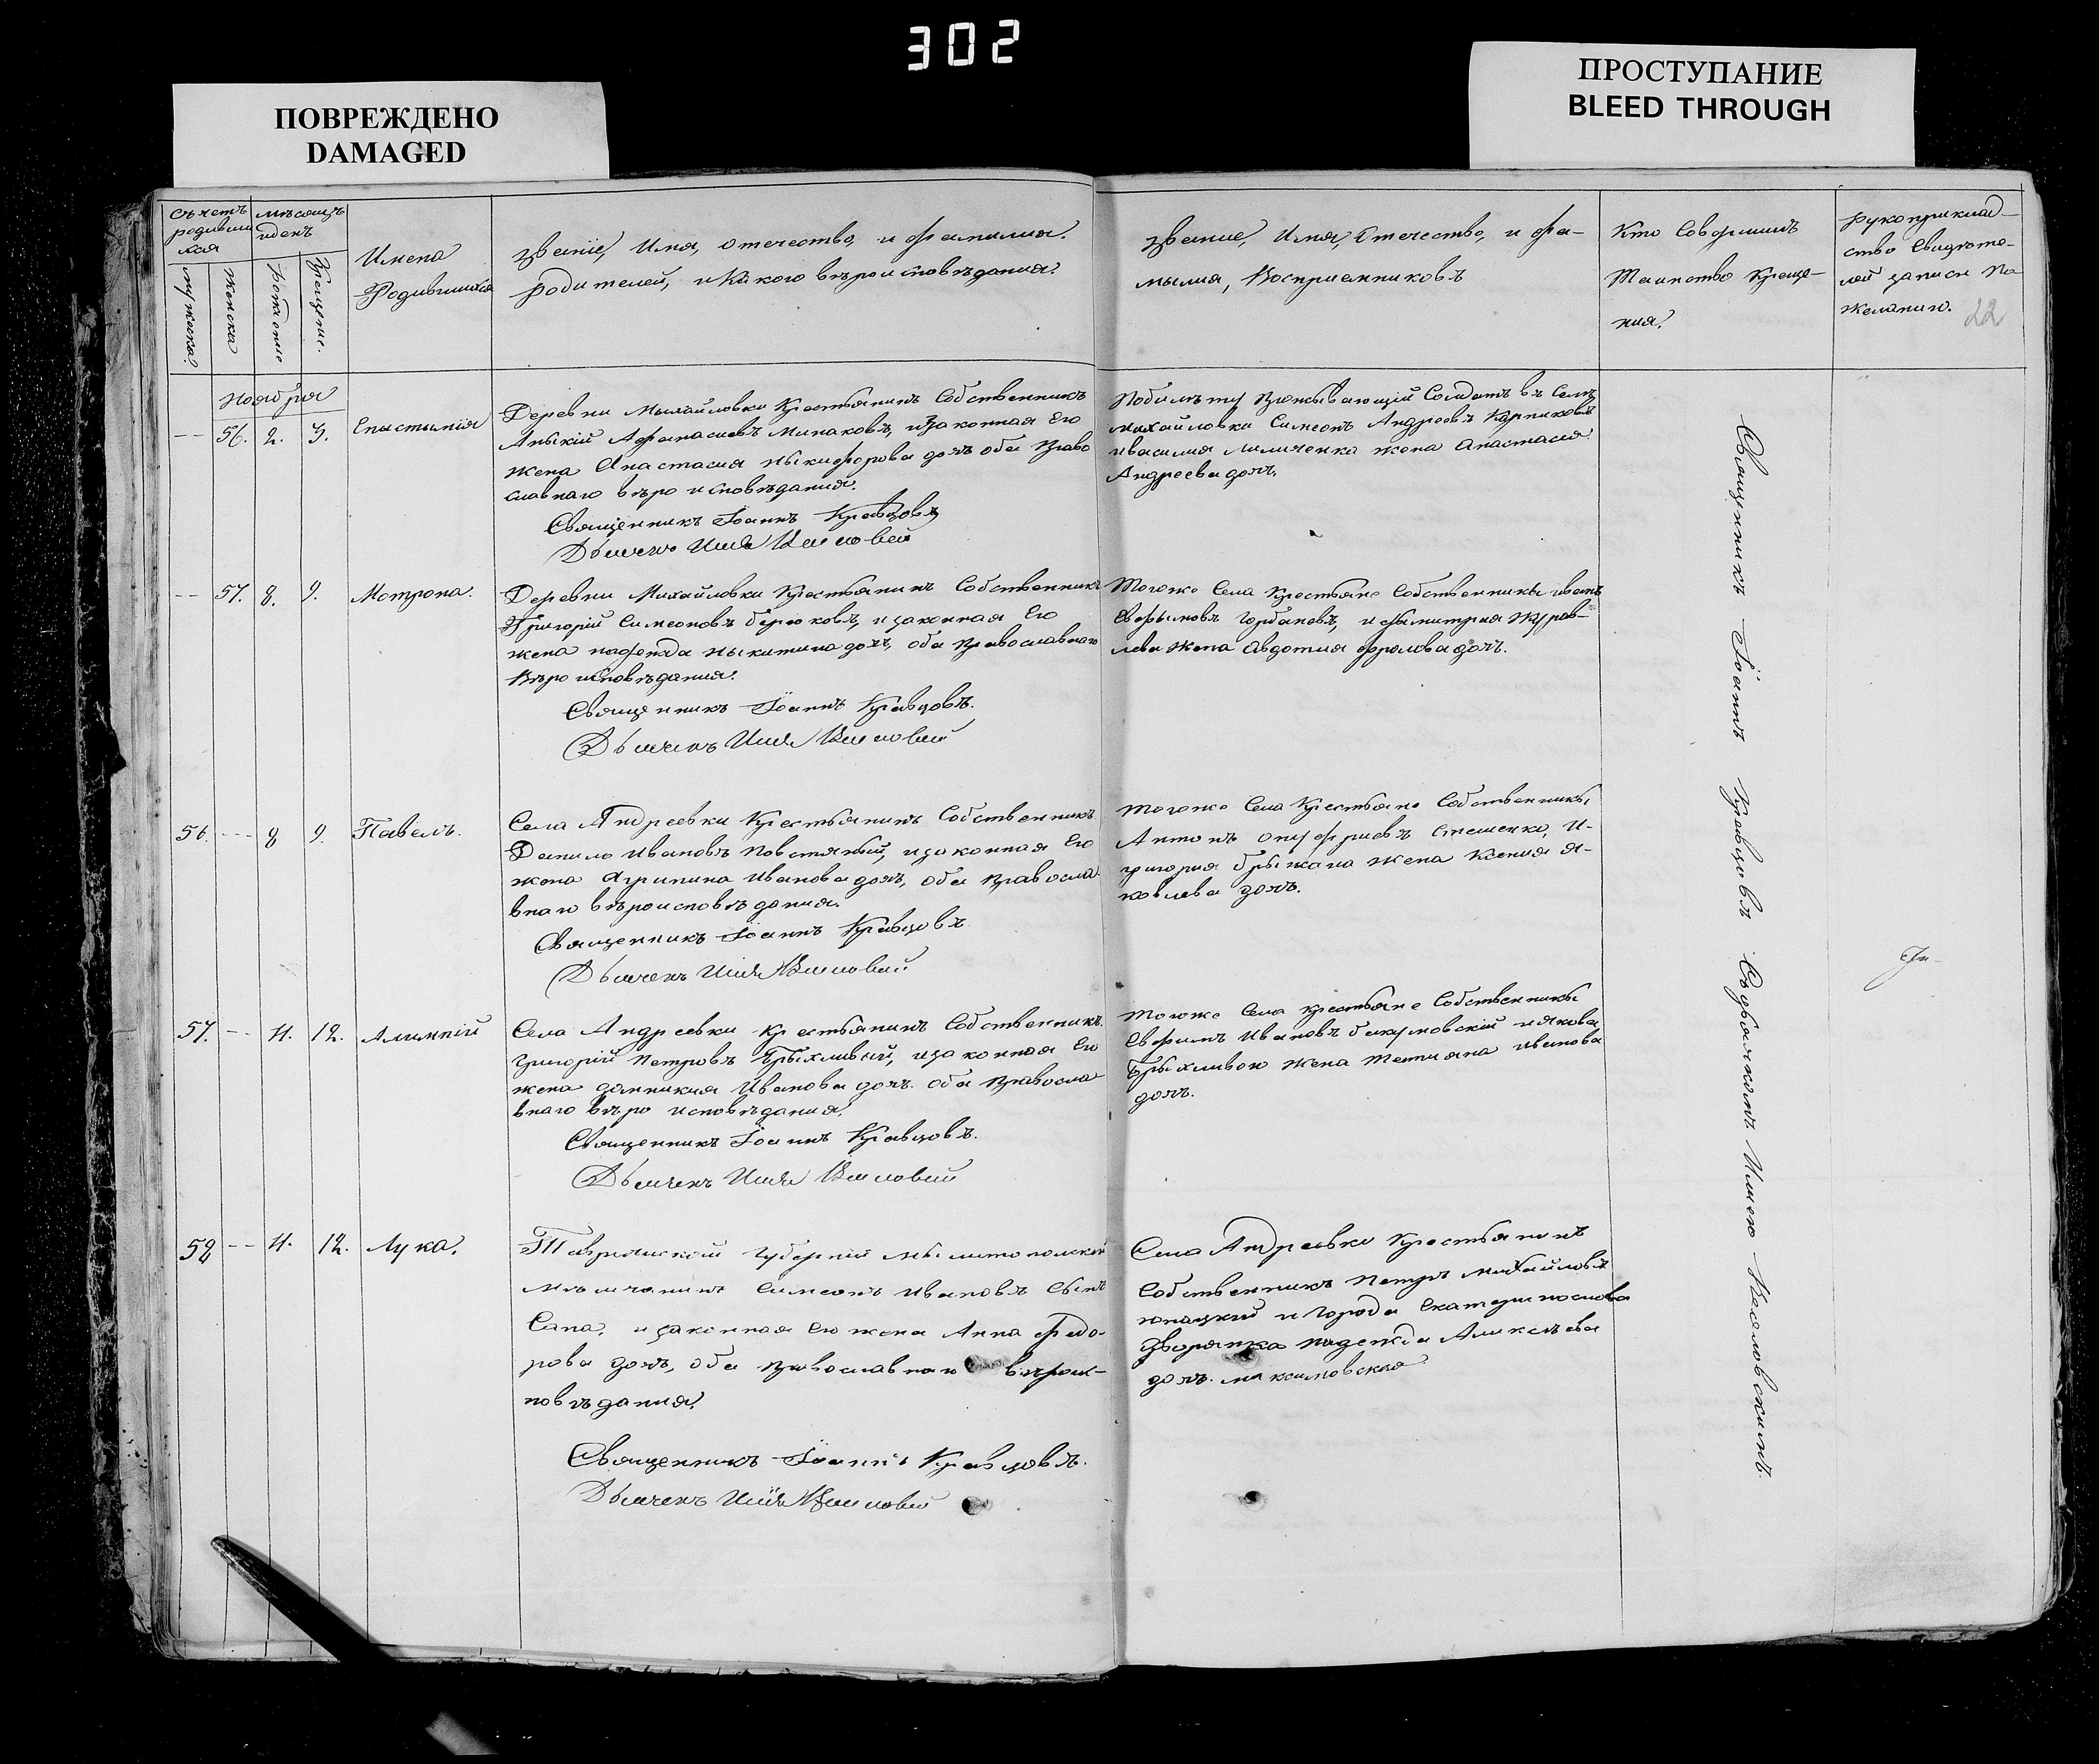 302
ПОВРЕЖДЕНО
DAMAGED
ПРОСТУПАНИЕ
BLEED THROUGH
Съчетъ
родивши
хся
мѣсяцъ
и день
мужеска.
женска
Рождение
Крещение.
Имена
Родившихся
Звание, Имя, отечество, и фамилия.
родителей, и какого вѣроисповѣдания.
Звание, Имя, Отечество, и фа-
мылия, Восприемниковъ
Кто Совершилъ
Таинство Креще-
ния.
Рукоприклад-
ство Свидѣте-
лей записи по
желанию.
22
Ноября
-- 56. 2. 3.
Деревни Михайловки Крестьянинъ Собственникъ
Афанасиевъ Минаковъ, и законная Его
жена Анастасия Ныкифорова дочь оба Право
славнаго вѣро исповѣдания.
Священникъ Іоаннъ Кравцовъ
Дьячекъ Илія
Побилѣту Проживающій Солдатъ въ Селѣ
Михайловки Симеонъ Андреевъ Карпиковъ
и василия жена Анастасия
Андреева дочь.
-- 57. 8. 9. Мотрона.
Деревни Михайловки Крестьянинъ Собственникъ
Григорій Симеоновъ Бирюковъ, и законная Его
жена надежда Ныкитина дочь, оба Православнаго
Вѣро исповѣдания.
Священникъ Іоаннъ Кравцовъ.
Дьячекъ Илія
Тогоже Села Крестьяне Собственники иванъ
Евфимовъ Горбановъ, и дымитрия Журав-
лева жена Авдотия фролова дочь.
56. --- 8 9. Павелъ.
Села Андреевки Крестьянинъ Собственникъ
Данило Ивановъ Повстяный, и законная Его
жена Агрипина Иванова дочь, оба Правосла
внаго вѣроисповѣдания.
Священникъ Іоаннъ Кравцовъ
Дьячекъ Илія
тогоже Села Крестьяне Собственники
Антонъ Онуфриевъ Стешенко, и-
григория брыжана жена Ксения я-
ковлева дочь.
57. -- 11. 12. Алимпій
Села Андреевки Крестьянинъ Собственникъ
Григорій Петровъ Брыхливый, и законная Его
жена домникия Иванова дочь. оба Правосла
внаго вѣро исповѣдания.
Священникъ Іоаннъ Кравцовъ.
Дьячекъ Илія
тогоже Села крестьяне Собственники
Ефимъ Ивановъ бакумовскій и якова
Брыхливою жена Татияна иванова
дочь.
58 -- 11. 12. Лука.
Таврической Губерніи Мылитополскій
мѣщанинъ Симеонъ Ивановъ Сынъ
Сапа, и законная Его жена Анна федо-
рова дочь, оба православнаго вѣроис-
повѣдания.
Священникъ Іоаннъ Кравцовъ.
Дьячекъ Илія
Села Андреевки Крестьянинъ
Собственникъ Петръ Михайловъ
и города Екатеринослава
дворянка надежда Аликсѣева
дочь. максимовская
Священникъ Іоаннъ Кравцовъ Съдьячкомъ Илиею Василовскимъ.